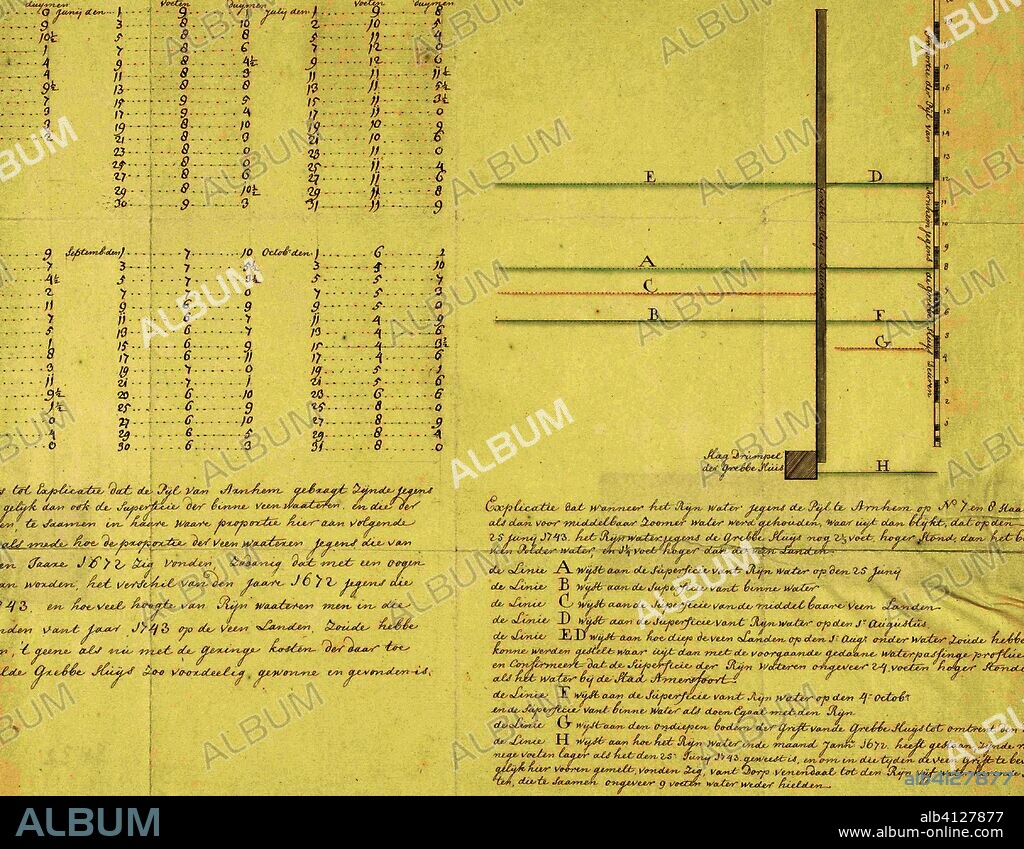 duymen voeten duymen voeten duymen
9 Junij den 1 9 1 Julij den 1 9 8
9 3 8 10 2 10 5
10½ 5 8 8 5 11 4
1 7 8 6 7 12 0
4 9 8 4½ 9 12 6
4 11 8 3 11 11 11½
9½ 13 8 8 13 11 5½
7 15 9 5 15 11 3½
3 17 9 4 17 11 0
9 19 8 10 19 10 9
2 21 8 3 21 10 6
23 8 0 23 11 0
25 8 0 25 11 4
27 8 6 27 11 6
29 8 10½ 29 11 8
30 9 3 31 11 9
9 Septemb den 1 7 10 Octob den 1 6 2
7 3 7 3 5 10
4½ 5 7 5 5 7
2 7 7 0 7 5 3
11 9 6 9 5 0
7 11 6 7 11 4 9
5 13 6 7 13 4 6
1 15 6 9 15 4 3½
8 17 6 11 17 4 6
3 19 7 0 19 5 1
11 21 7 1 21 5 6
9½ 20 6 10 23 6 6
1½ 25 6 9 25 8 0
0 27 6 10 27 8 9
4 29 6 5 29 8 4
0 30 6 3 31 8 0
E D
A
C
B F
G
H
Grebbe Sluys Deuren
Proportie der Pijl van Arnhem jegens de Grebbe Sluys Deuren
17
16
15
14
13
12
11
10
9
8
7
6
5
4
3
2
1
Slag Drumpel
der Grebbe Sluis
s tot Explicatie dat de Pijl van Arnhem gebragt zijnde jegens
gelijk dan ook de Superficie der binne veenwaateren, en die der
en, te Saamen in haare waare proportie hier aan volgende
als mede hoe de proportie der veenwaateren jegens die van
en Jaare 1672 Zig vonden, Zodanig dat met een oogen
an worden, het verschil van den jaare 1672 jegens die
743, en hoe veel hoogte van Rijn waateren men in die
nden vant jaar 1743 op de veen Landen, Zoude hebbe
en, 't geene als nu met de geringe kosten der daar toe
lde Grebbe Sluijs Zoo voordeelig, gewonne en gevonden is.
Explicatie dat wanneer het Rijn water jegens de Pijl te Arnhem op No. 7 en 8 Staa
als dan voor middelbaar Zoomer water werd gehouden, waar uijt dan blijkt, dat op den
25 junij 1743. het Rijn water jegens de Grebbe Sluijs nog 2½ voet, hooger Stond, dan het b
ven Polder water, en 1½ voet hoger dan de veen Landen
de Linie A wijst aan de Superficie vant Rijn water op den 25 junij
de Linie B wijst aan de Superficie vant binne water
de Linie C wijst aan de Superficie van de middelbaare veen Landen
de Linie D wijst aan de Superficie vant Rijn water op den 1e Augustus
de Linie ED wijst aan hoe diep de veen Landen op den 1e Aug. onder water Zoude hebbe
konne werden gestelt waar uijt dan met de voorgaande gedaane waterpassinge proflie
en Confirmeert dat de Superficie der Rijn wateren ongeveer 24 voeten hoger Stonde
als het water bij de Stad Amersfoort
de Linie F wijst aan de Superficie vant Rijn water op den 4e octobr
en de Superficie vant binne water als doen Egaal met den Rijn
de Linie G wijst aan den ondiepen bodem der Grift van de Grebbe Sluijs tot omtrent den
de Linie H wijst aan hoe het Rijn water inde maand Janr 1672. heeft gestaan, Zijnde
nege voeten lager als het den 25e Junij 1743. geweest is, en om in die tijden de veen Grift te be
gelijk hier vooren gemelt, vonden Zig, vant Dorp venendaal tot den Rijn
ten, die te Saamen ongeveer 9 voeten water weder hielden
ALBUM
alb4127877
ALBUM
alb4127877
www.album-online.com